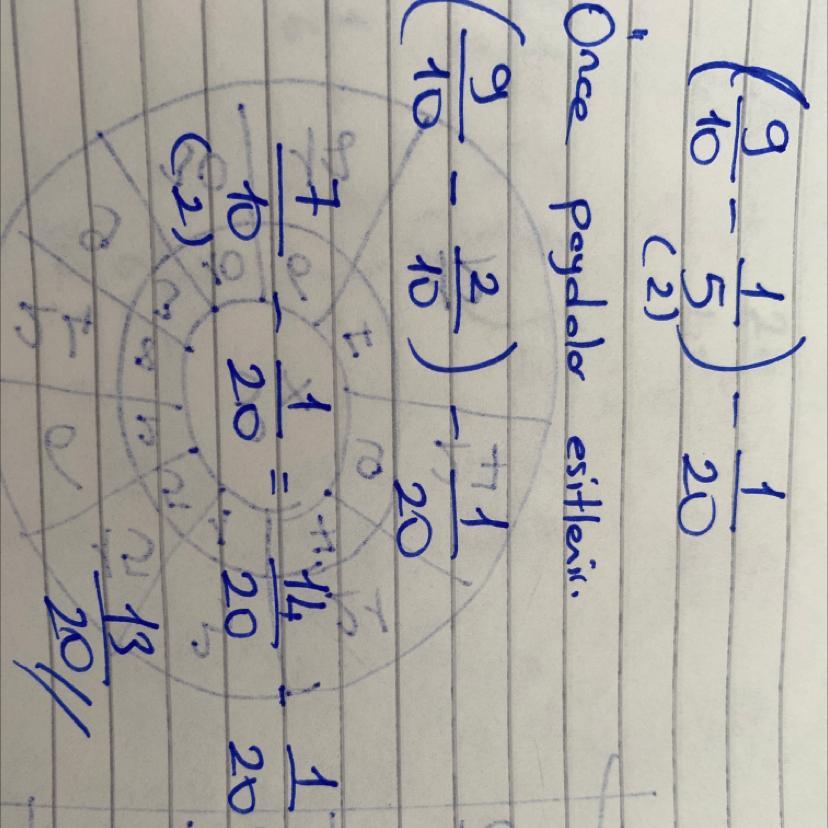 (9/10 - 1/5) - 1/20
(2)
Önce paydalar esitlenir.
(9/10 - 2/10) - 1/20
7/10 - 1/20 = 14/20 - 1/20
(2)
13/20//